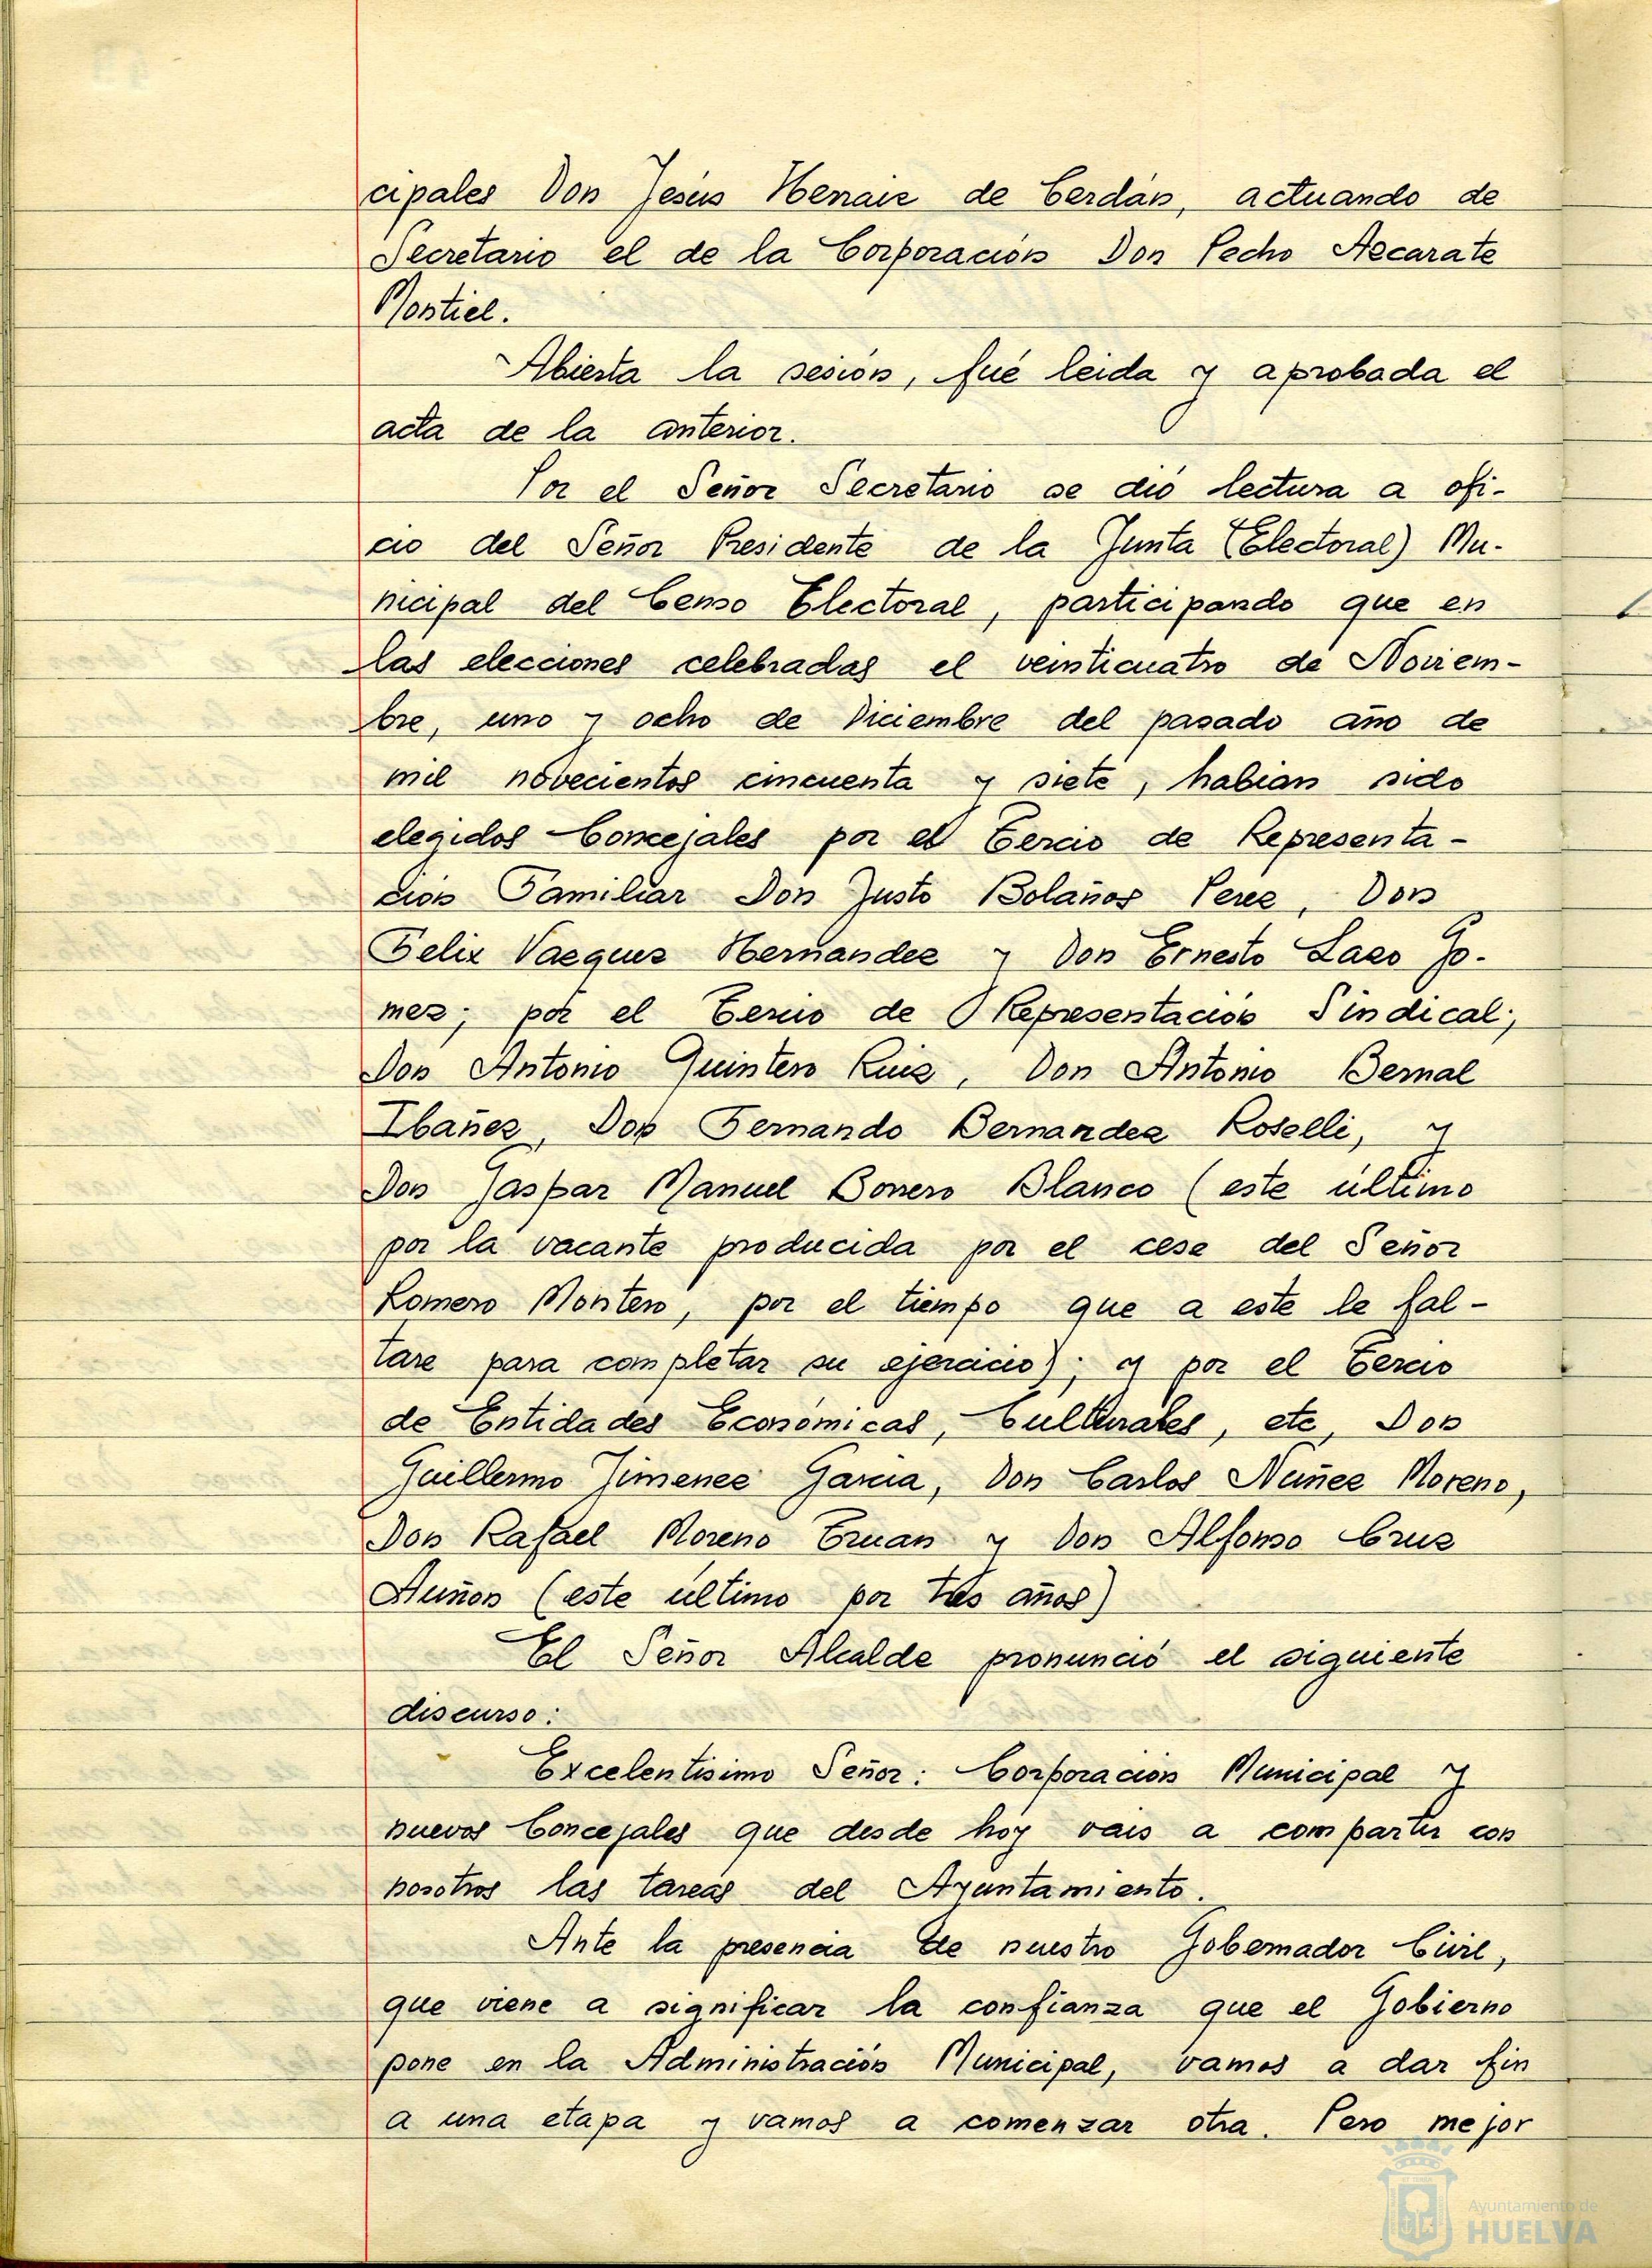 cipales Don Jesús Henaiz de Cerdán, actuando de
Secretario el de la Corporación Don Pecho Azcarate
Montiel.
Abierta la sesión, fué leida y aprobada el
acta de la anterior.
Por el Señor Secretario se dió lectura a ofi-
cio del Señor Presidente de la Junta (Electoral) Mu-
nicipal del Censo Electoral, participando que en
las elecciones celebradas el veinticuatro de Noviem-
bre, uno y ocho de Diciembre del pasado año de
mil novecientos cincuenta y siete, habian sido
elegidos Concejales por el Tercio de Representa-
ción Familiar Don Justo Bolaños Perez, Don
Felix Vazquez Hernandez y Don Ernesto Lazo Go-
mez; por el Tercio de Representación Sindical,
Don Antonio Quintero Ruiz, Don Antonio Bernal
Ibañez, Don Fernando Bernandez Roselli, y
Don Gaspar Manuel Bonero Blanco (este último
por la vacante producida por el cese del Señor
Romero Montero, por el tiempo que a este le fal-
tare para completar su ejercicio); y por el Tercio
de Entidades Económicas, Culturales, etc, Don
Guillermo Jimenez Garcia, Don Carlos Nuñez Moreno,
Don Rafael Moreno Eruan y Don Alfonso Cruz
Auñon (este último por tres años)
El Señor Alcalde pronunció el siguiente
discurso:
Excelentisimo Señor: Corporación Municipal y
nuevos Concejales que desde hoy vais a compartir con
nosotros las tareas del Ayuntamiento.
Ante la presencia de nuestro Gobernador Civil,
que viene a significar la confianza que el Gobierno
pone en la Administración Municipal, vamos a dar fin
a una etapa y vamos a comenzar otra. Pero mejor
Ayuntamiento de
HUELVA